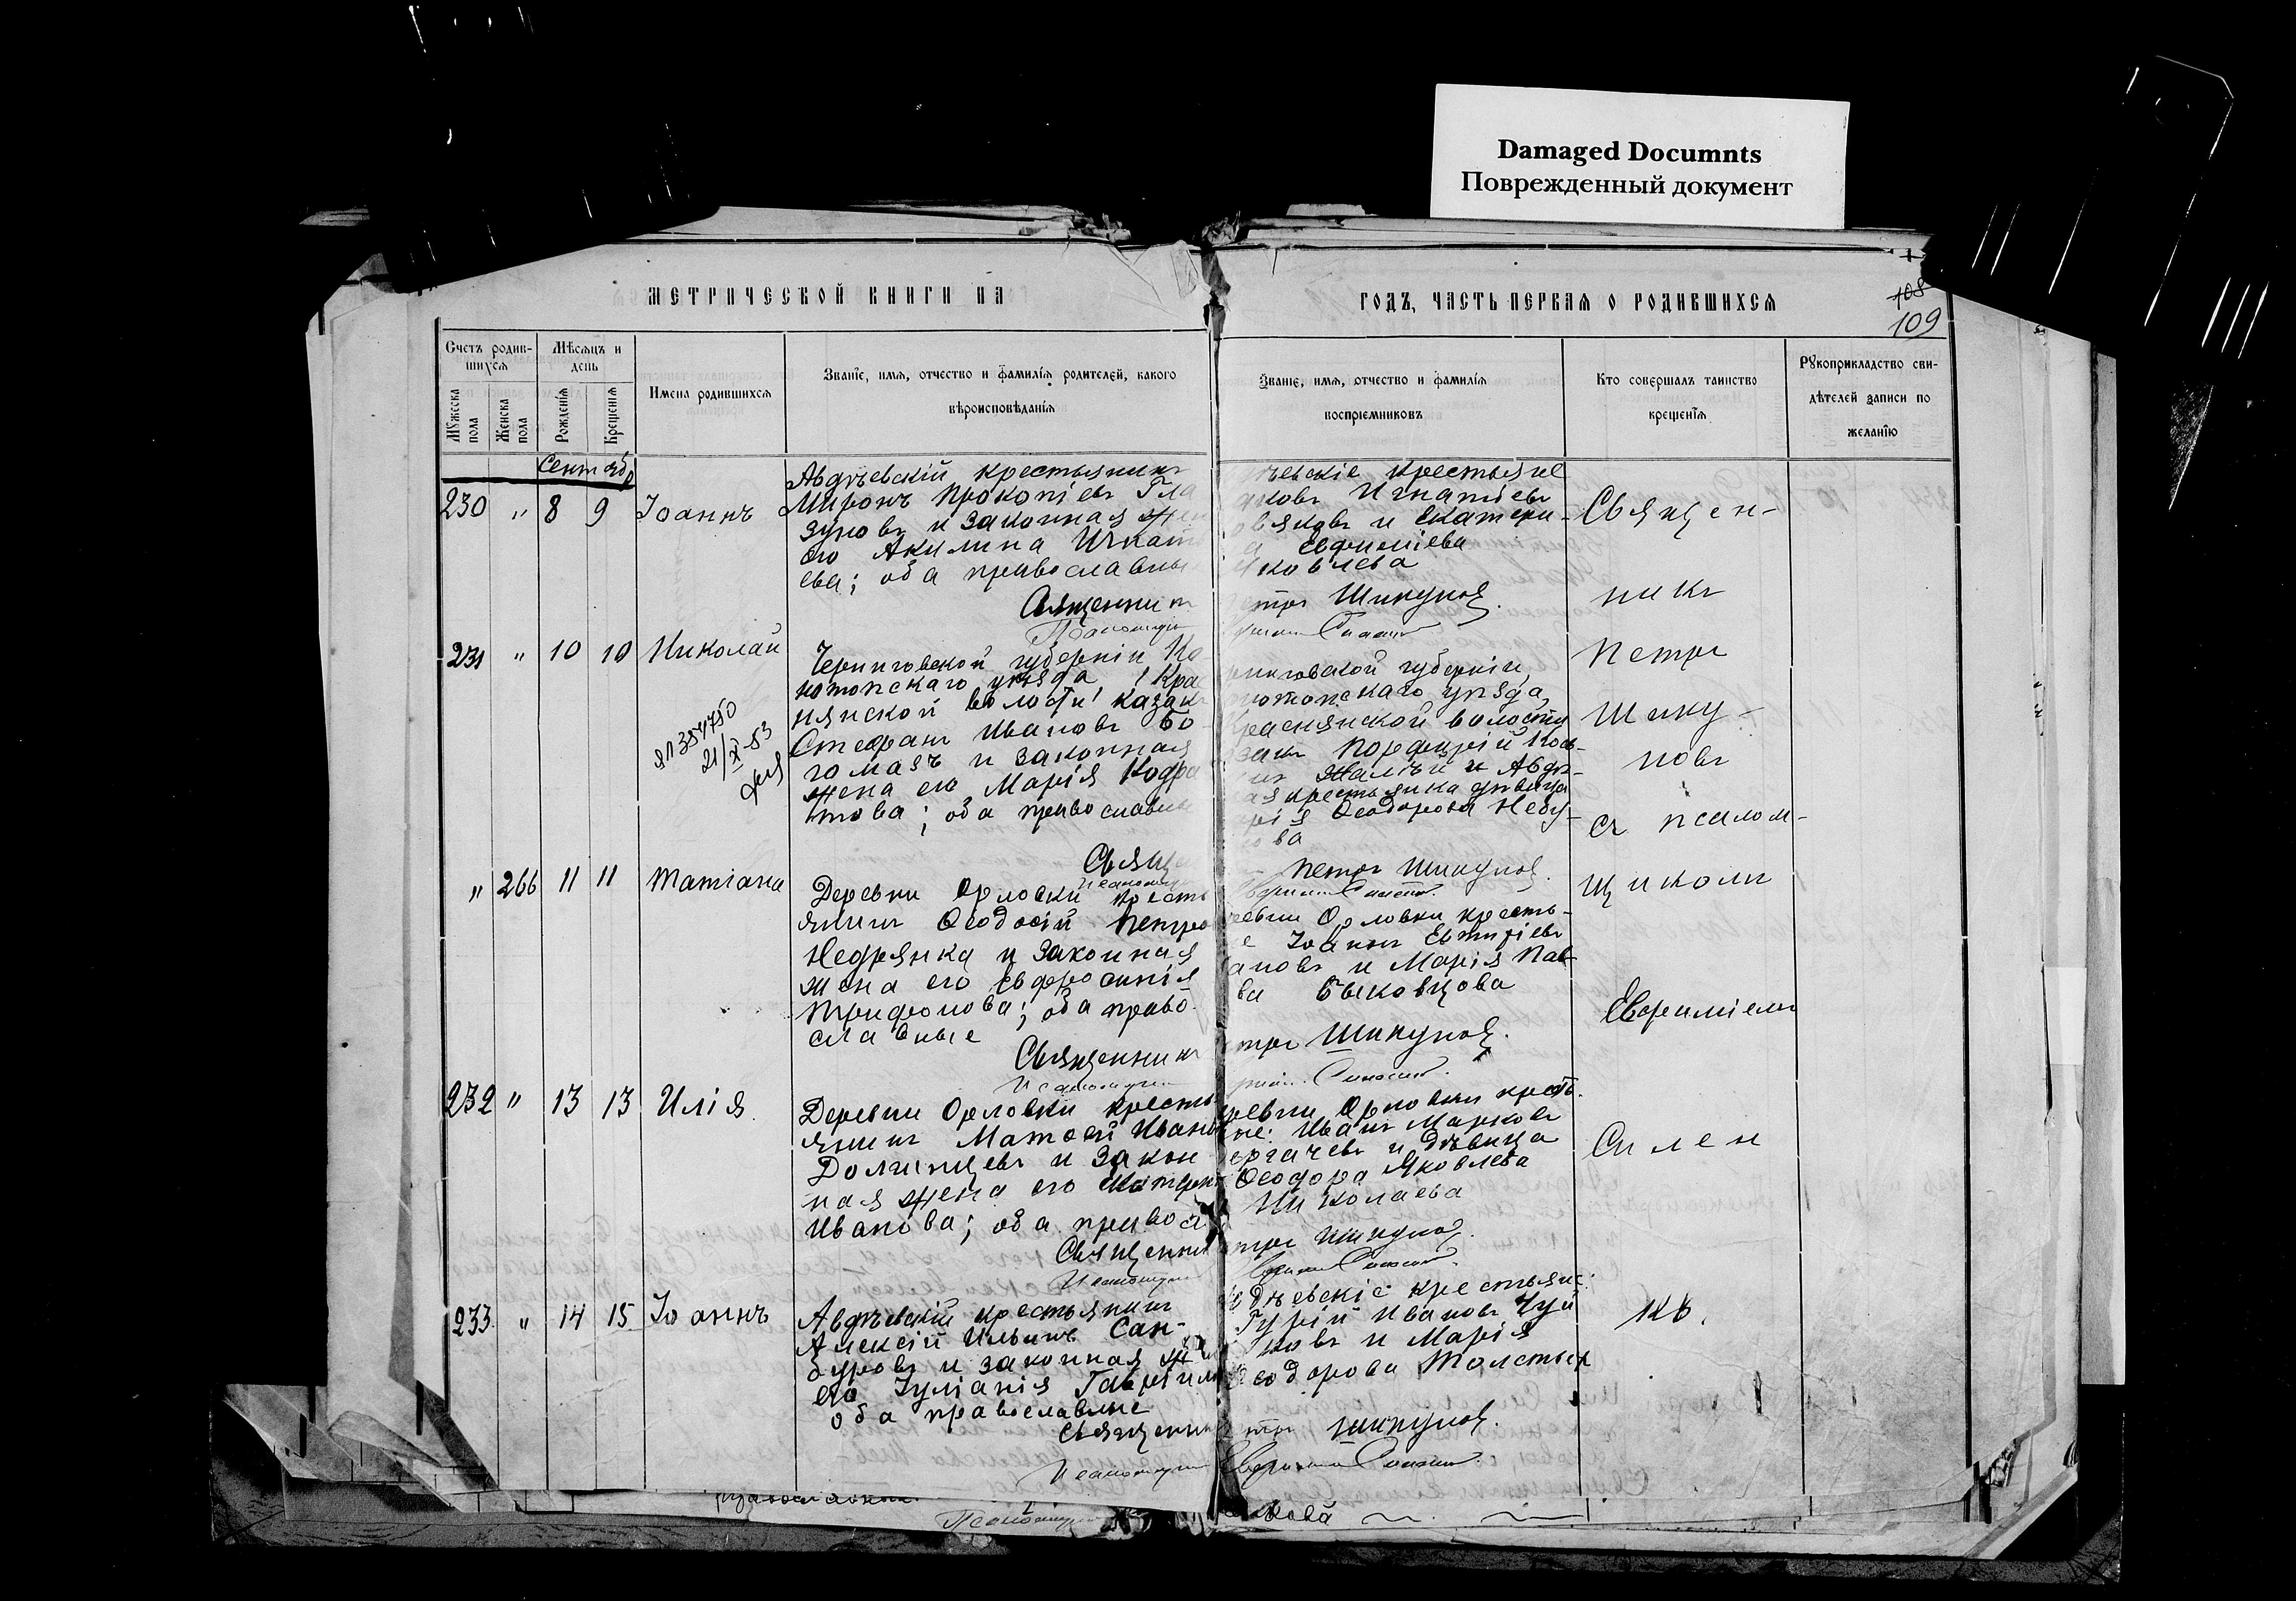 Damaged Documnts
Поврежденный документ
МЕТРИЧЕСКОЙ КНИГИ НА
ГОДЪ, ЧАСТЬ ПЕРВАЯ О РОДИВШИХСЯ
108
109
Счетъ родив-
шихся
Мужеска пола
Женска пола
Мѣсяцъ и
день
Рожденія
Крещенія
Имена родившихся
Званіе, имя, отчество и фамилія родителей, какого
вѣроисповѣданія
Званіе, имя, отчество и фамилія
воспріемниковъ
Кто совершалъ таинство
крещенія
Рукоприкладство сви-
дѣтелей записи по
желанію
Сентябр
230 " 8 9 Іоаннъ
Авдѣевскій крестьянинъ
Миронъ Прокопіевъ Гла
зуновъ и законная жен
его Акилина Игнат
ева; оба православны
Священник
ѣевскіе крестьяне
яковъ Игнатіевъ
овляковъ и Екатери-
а Евфиміева
Яковлева
етръ Шипуновъ.
231 " 10 10 Николай
Черниговской губерніи Ко
нотопскаго уѣзда, Кра
нянской волости казакъ
Стефанъ Ивановъ Бо-
гомазъ и законная
жена его Марія Кодра
това; оба православны
Свящ
ниговской губерніи,
нотопскаго уѣзда,
Краснянской волости
закъ Порфирій Кось-
инъ Жалѣй и Авдѣ-
ая крестьянка дѣвица
рія Ѳеодорова Небу-
ова
Петръ Шипуновъ.
" 266 11 11 Татіана
Деревни Орловки кресть
янинъ Ѳеодосій Петро
Недрянка и законная
жена его Евфросинія
Трифонова; оба право-
славные
Священникъ
евни Орловки кресть-
е Іоаннъ Евтихіевъ
ановъ и Марія Пав-
ва Быковцова
тръ Шипуновъ.
232 " 13 13 Илія.
Деревни Орловки кресть
янинъ Матѳей Ивано
Долинцевъ и закон
ная жена его Катерин
Иванова; оба правосл
Священни
ревни Орловки кресть.
не: Иванъ Марковъ
ергачевъ и дѣвица
Ѳеодора Яковлева
Николаева
тръ Шипуновъ.
233. " 14 15 Іоаннъ
Авдѣевскій крестьянинъ
Алексій Ильинъ Сан-
буровъ и законная же
его Іуліанія Гавріил
оба православные
Священни
вдѣевскіе крестьяне:
Гурій Ивановъ Чуй
ковъ и Марія
Ѳеодорова Толстых
тръ Шипуновъ.
Священ-
никъ
Петръ
Шипу-
новъ
съ псалом-
щикомъ
Евфиміемъ
Силен
ков.
ЯЛ 384750
21/XI-83